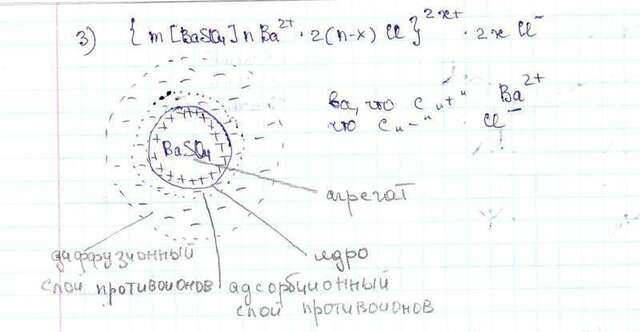 3) { m [BaSO₄] n Ba²⁺ · 2(n-x) Cl⁻ }²ˣ⁺ · 2x Cl⁻
Ва, что с "+" Ba²⁺
что с "-" Cl⁻
BaSO₄
агрегат
диффузионный ядро
слой противоионов адсорбционный
слой противоионов